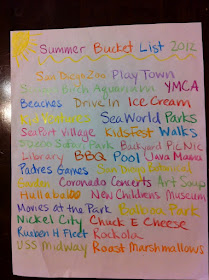 Summer Bucket List 2012
San Diego Zoo Play Town
Birch Aquarium YMCA
Beaches Drive In Ice Cream
Kid Ventures Sea World Parks
Seaport Village Kidsfest Walks
Safari Park Backyard Picnic
Library BBQ Pool Java Mama
Padres Games San Diego Botanical
Garden Coronado Concerts Art Soup
Hullabaloo New Childrens Museum
Movies at the Park Balboa Park
Nickel City Chuck E Cheese
Reuben H Fleet Rockola
USS Midway Roast Marshmallows